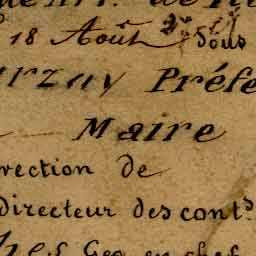 18 Août
Sous
arzay Préfe
Maire
rection de
directeur des cont.s
Geo. en chef